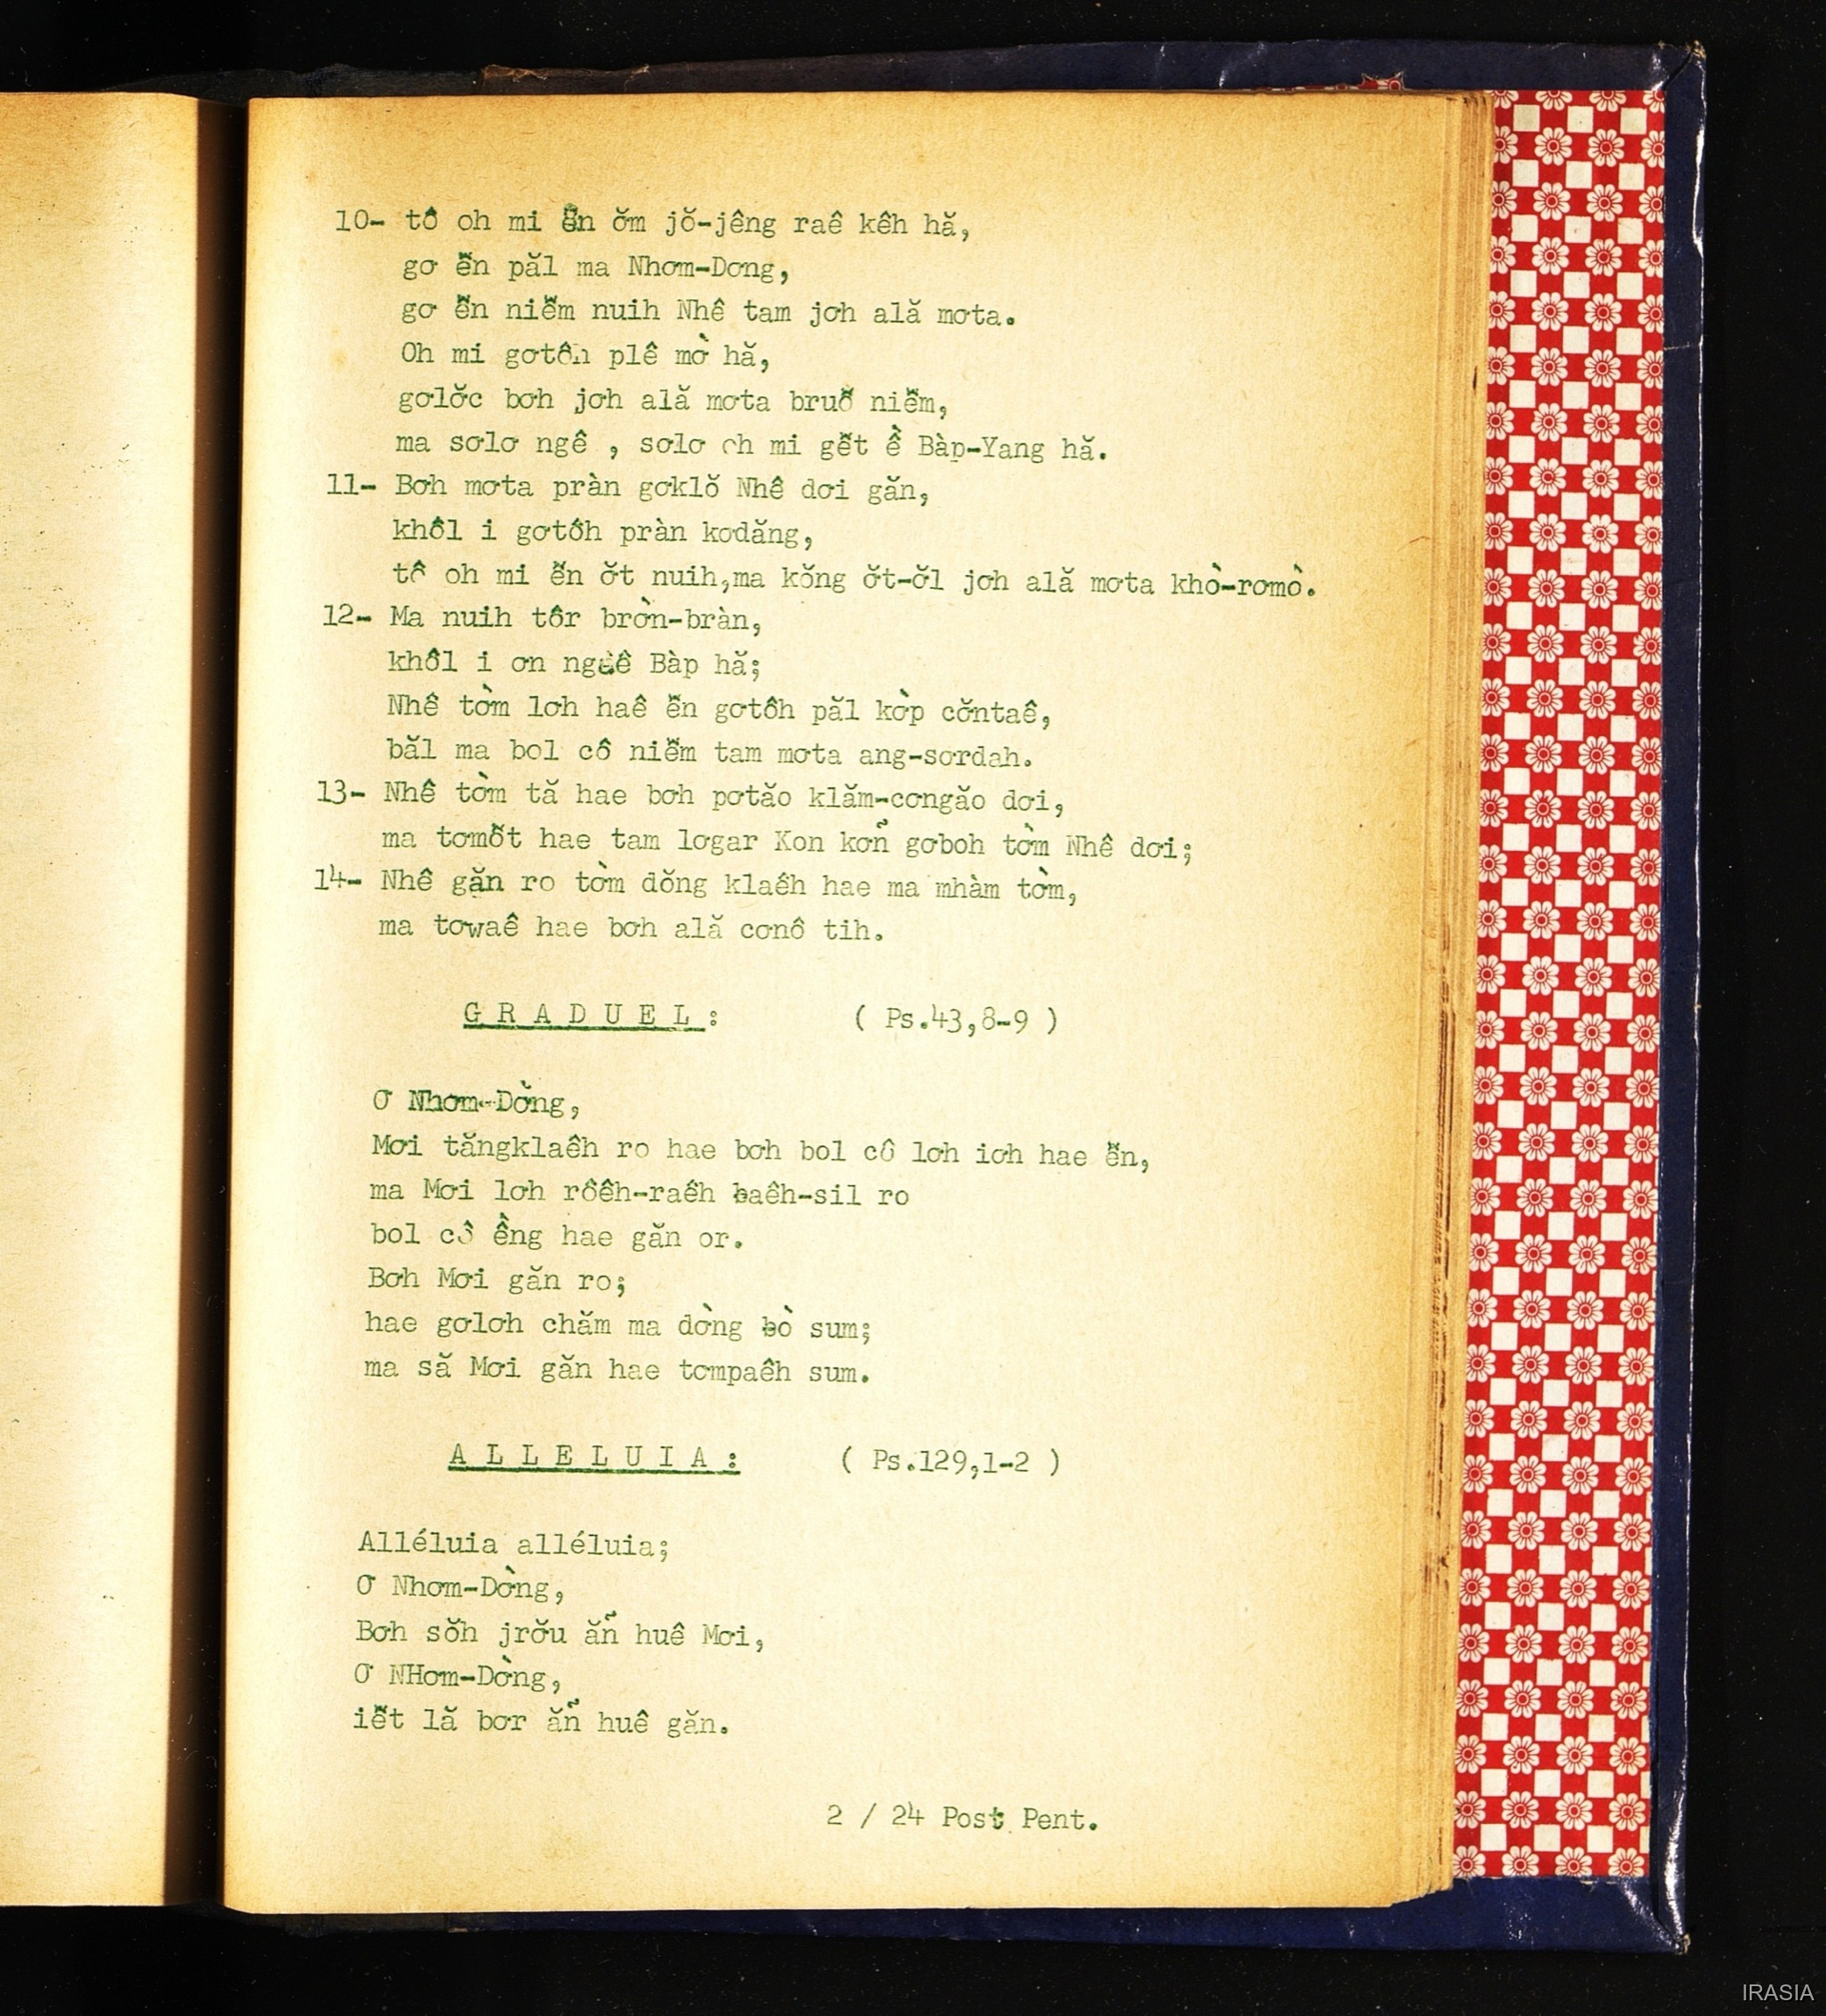 10- tô oh mi ê̆n ơ̆m jŏ-jêng raê kêh hă,
gơ ê̆n păl ma Nhơm-Dơng,
gơ ê̆n niê̆m nuih Nhê tam jơh ală mơta.
Oh mi gơtôh plê mờ hă,
gơlơ̆c bơh jơh ală mơta bruô̆ niê̆m,
ma sơlơ ngê , sơlơ oh mi gê̆t ề Bàp-Yang hă.
11- Bơh mơta pràn gơklŏ Nhê dơi găn,
khôl i gơtôh pràn kơdăng,
tô oh mi ê̆n ơ̆t nuih,ma kŏng ơ̆t-ơ̆l jơh ală mơta khò-rơmò.
12- Ma nuih tôr brờn-bràn,
khôl i ơn Bàp hă;
Nhê tờm lơh haê ê̆n gơtôh păl kờp cơ̆ntaê,
băl ma bol cô niê̆m tam mơta ang-sơrdah.
13- Nhê tờm tă hae bơh pơtăo klăm-cơngăo dơi,
ma tơmô̆t hae tam lơgar Kon kơñ gơboh tờm Nhê dơi;
14- Nhê găn ro tờm dŏng klaêh hae ma mhàm tờm,
ma tơwaê hae bơh ală cơnô tih.
G R A D U E L : ( Ps.43,8-9 )
Ơ Nhơm-Dờng,
Mơi tăngklaêh ro hae bơh bol cô lơh iơh hae ê̆n,
ma Mơi lơh rôêh-raêh baêh-sil ro
bol cô ềng hae găn or.
Bơh Mơi găn ro;
hae gơlơh chăm ma dờng bò sum;
ma să Mơi găn hae tơmpaêh sum.
A L L E L U I A : ( Ps.129,1-2 )
Alléluia alléluia;
Ơ Nhơm-Dờng,
Bơh sŏh jrơ̆u ăñ huê Mơi,
Ơ NHơm-Dờng,
iê̆t lă bơr ăñ huê găn.
2 / 24 Post Pent.
IRASIA